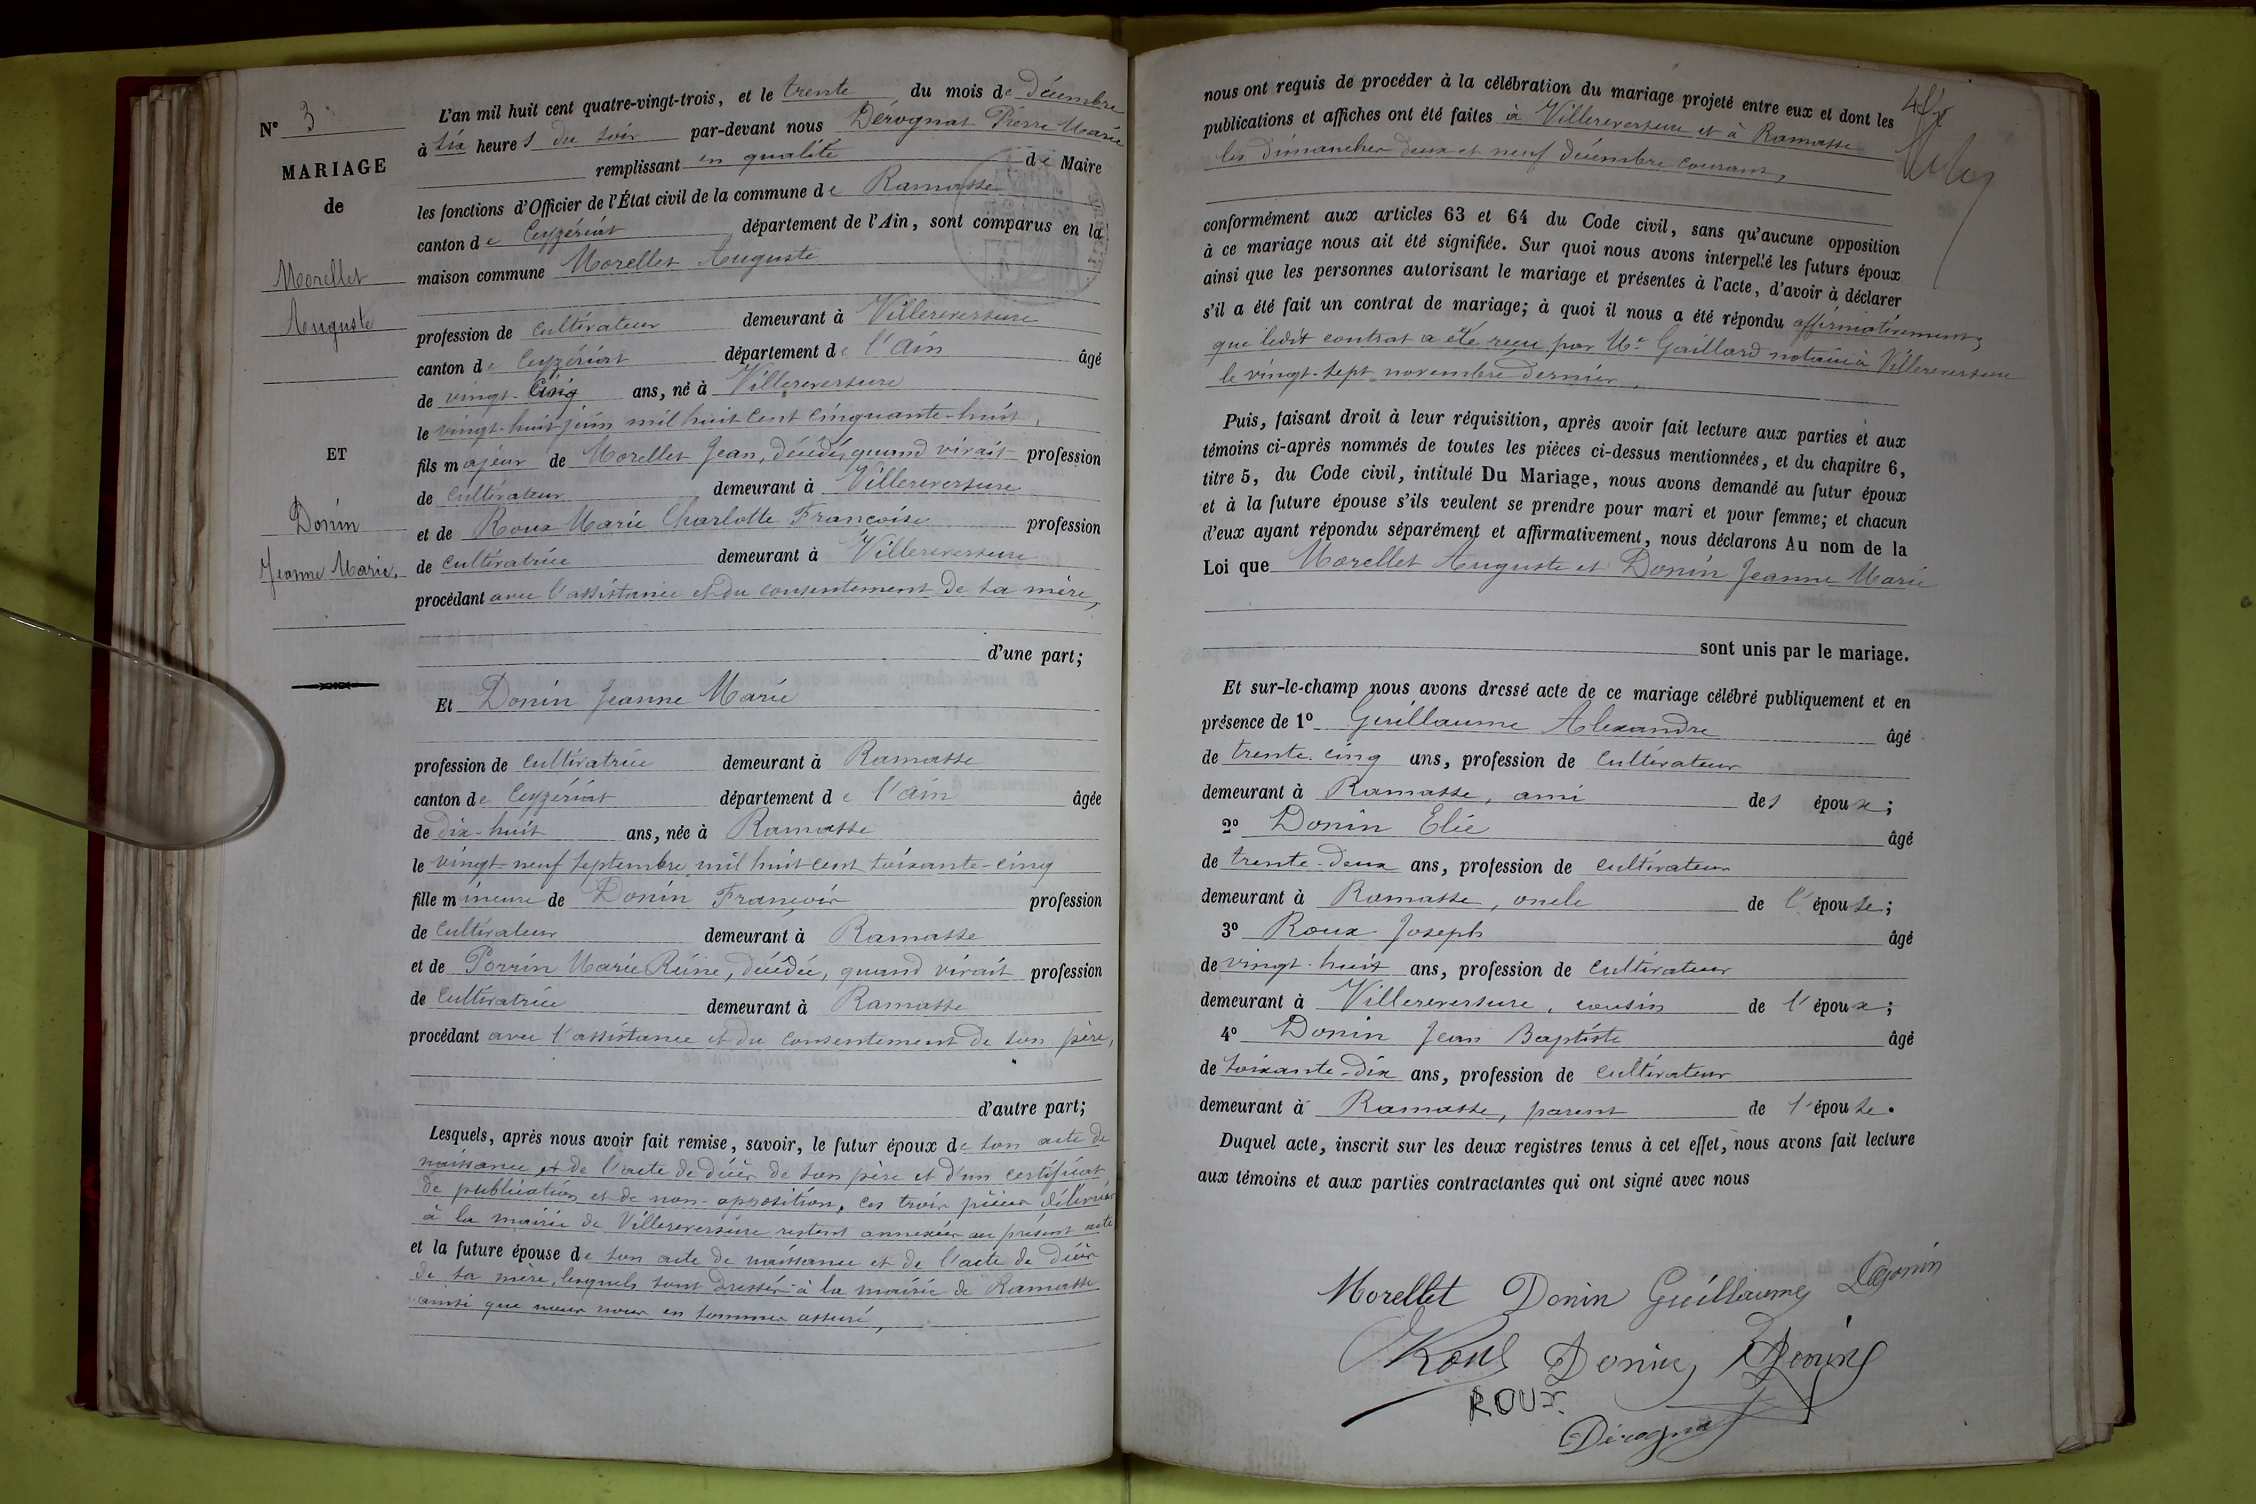 N° 3
MARIAGE
de
Morellet
Auguste
ET
Donin
Jeanne Marie.
L'an mil huit cent quatre-vingt-trois, et le trente du mois de décembre
à six heures du soir par-devant nous Dérognat Pierre Marie
remplissant en qualité de Maire
les fonctions d'Officier de l'État civil de la commune de Ramasse
canton de Ceyzériat département de l'Ain, sont comparus en la
maison commune Morellet Auguste
profession de cultivateur demeurant à Villereversure
canton de Ceyzériat département de l'Ain âgé
de vingt-cinq ans, né à Villereversure
le vingt-huit juin mil huit cent cinquante-huit,
fils majeur de Morellet Jean, décédé, quand vivait profession
de cultivateur demeurant à Villereversure
et de Roux Marie Charlotte Françoise profession
de cultivatrice demeurant à Villereversure
procédant avec l'assistance et du consentement de sa mère,
d'une part;
Et Donin Jeanne Marie
profession de cultivatrice demeurant à Ramasse
canton de Ceyzériat département de l'Ain âgée
de dix-huit ans, née à Ramasse
le vingt-neuf septembre mil huit cent soixante-cinq
fille mineure de Donin François profession
de cultivateur demeurant à Ramasse
et de Perrin Marie Reine, décédée, quand vivait profession
de cultivatrice demeurant à Ramasse
procédant avec l'assistance et du consentement de son père,
d'autre part;
Lesquels, après nous avoir fait remise, savoir, le futur époux de son acte de
naissance et de l'acte de décès de son père et d'un certificat
de publication et de non-opposition, ces trois pièces délivrées
à la mairie de Villereversure restent annexées au présent acte
et la future épouse de son acte de naissance et de l'acte de décès
de sa mère, lesquels sont dressés à la mairie de Ramasse
ainsi que nous nous en sommes assuré,
nous ont requis de procéder à la célébration du mariage projeté entre eux et dont les
publications et affiches ont été faites à Villereversure et à Ramasse
les dimanches deux et neuf décembre courant,
conformément aux articles 63 et 64 du Code civil, sans qu'aucune opposition
à ce mariage nous ait été signifiée. Sur quoi nous avons interpellé les futurs époux
ainsi que les personnes autorisant le mariage et présentes à l'acte, d'avoir à déclarer
s'il a été fait un contrat de mariage; à quoi il nous a été répondu affirmativement;
que ledit contrat a été reçu par Me Gaillard notaire à Villereversure
le vingt-sept novembre dernier,
Puis, faisant droit à leur réquisition, après avoir fait lecture aux parties et aux
témoins ci-après nommés de toutes les pièces ci-dessus mentionnées, et du chapitre 6,
titre 5, du Code civil, intitulé Du Mariage, nous avons demandé au futur époux
et à la future épouse s'ils veulent se prendre pour mari et pour femme; et chacun
d'eux ayant répondu séparément et affirmativement, nous déclarons Au nom de la
Loi que Morellet Auguste et Donin Jeanne Marie
sont unis par le mariage.
Et sur-le-champ nous avons dressé acte de ce mariage célébré publiquement et en
présence de 1° Guillaume Alexandre âgé
de trente-cinq ans, profession de cultivateur
demeurant à Ramasse, ami des époux;
2° Donin Elie âgé
de trente-deux ans, profession de cultivateur
demeurant à Ramasse, oncle de l'épouse;
3° Roux Joseph âgé
de vingt-huit ans, profession de cultivateur
demeurant à Villereversure, cousin de l'époux;
4° Donin Jean Baptiste âgé
de soixante-dix ans, profession de cultivateur
demeurant à Ramasse, parent de l'épouse.
Duquel acte, inscrit sur les deux registres tenus à cet effet, nous avons fait lecture
aux témoins et aux parties contractantes qui ont signé avec nous
Morellet Donin Guillaume Donin
Roux Donin Donin
ROUX
Dérognat